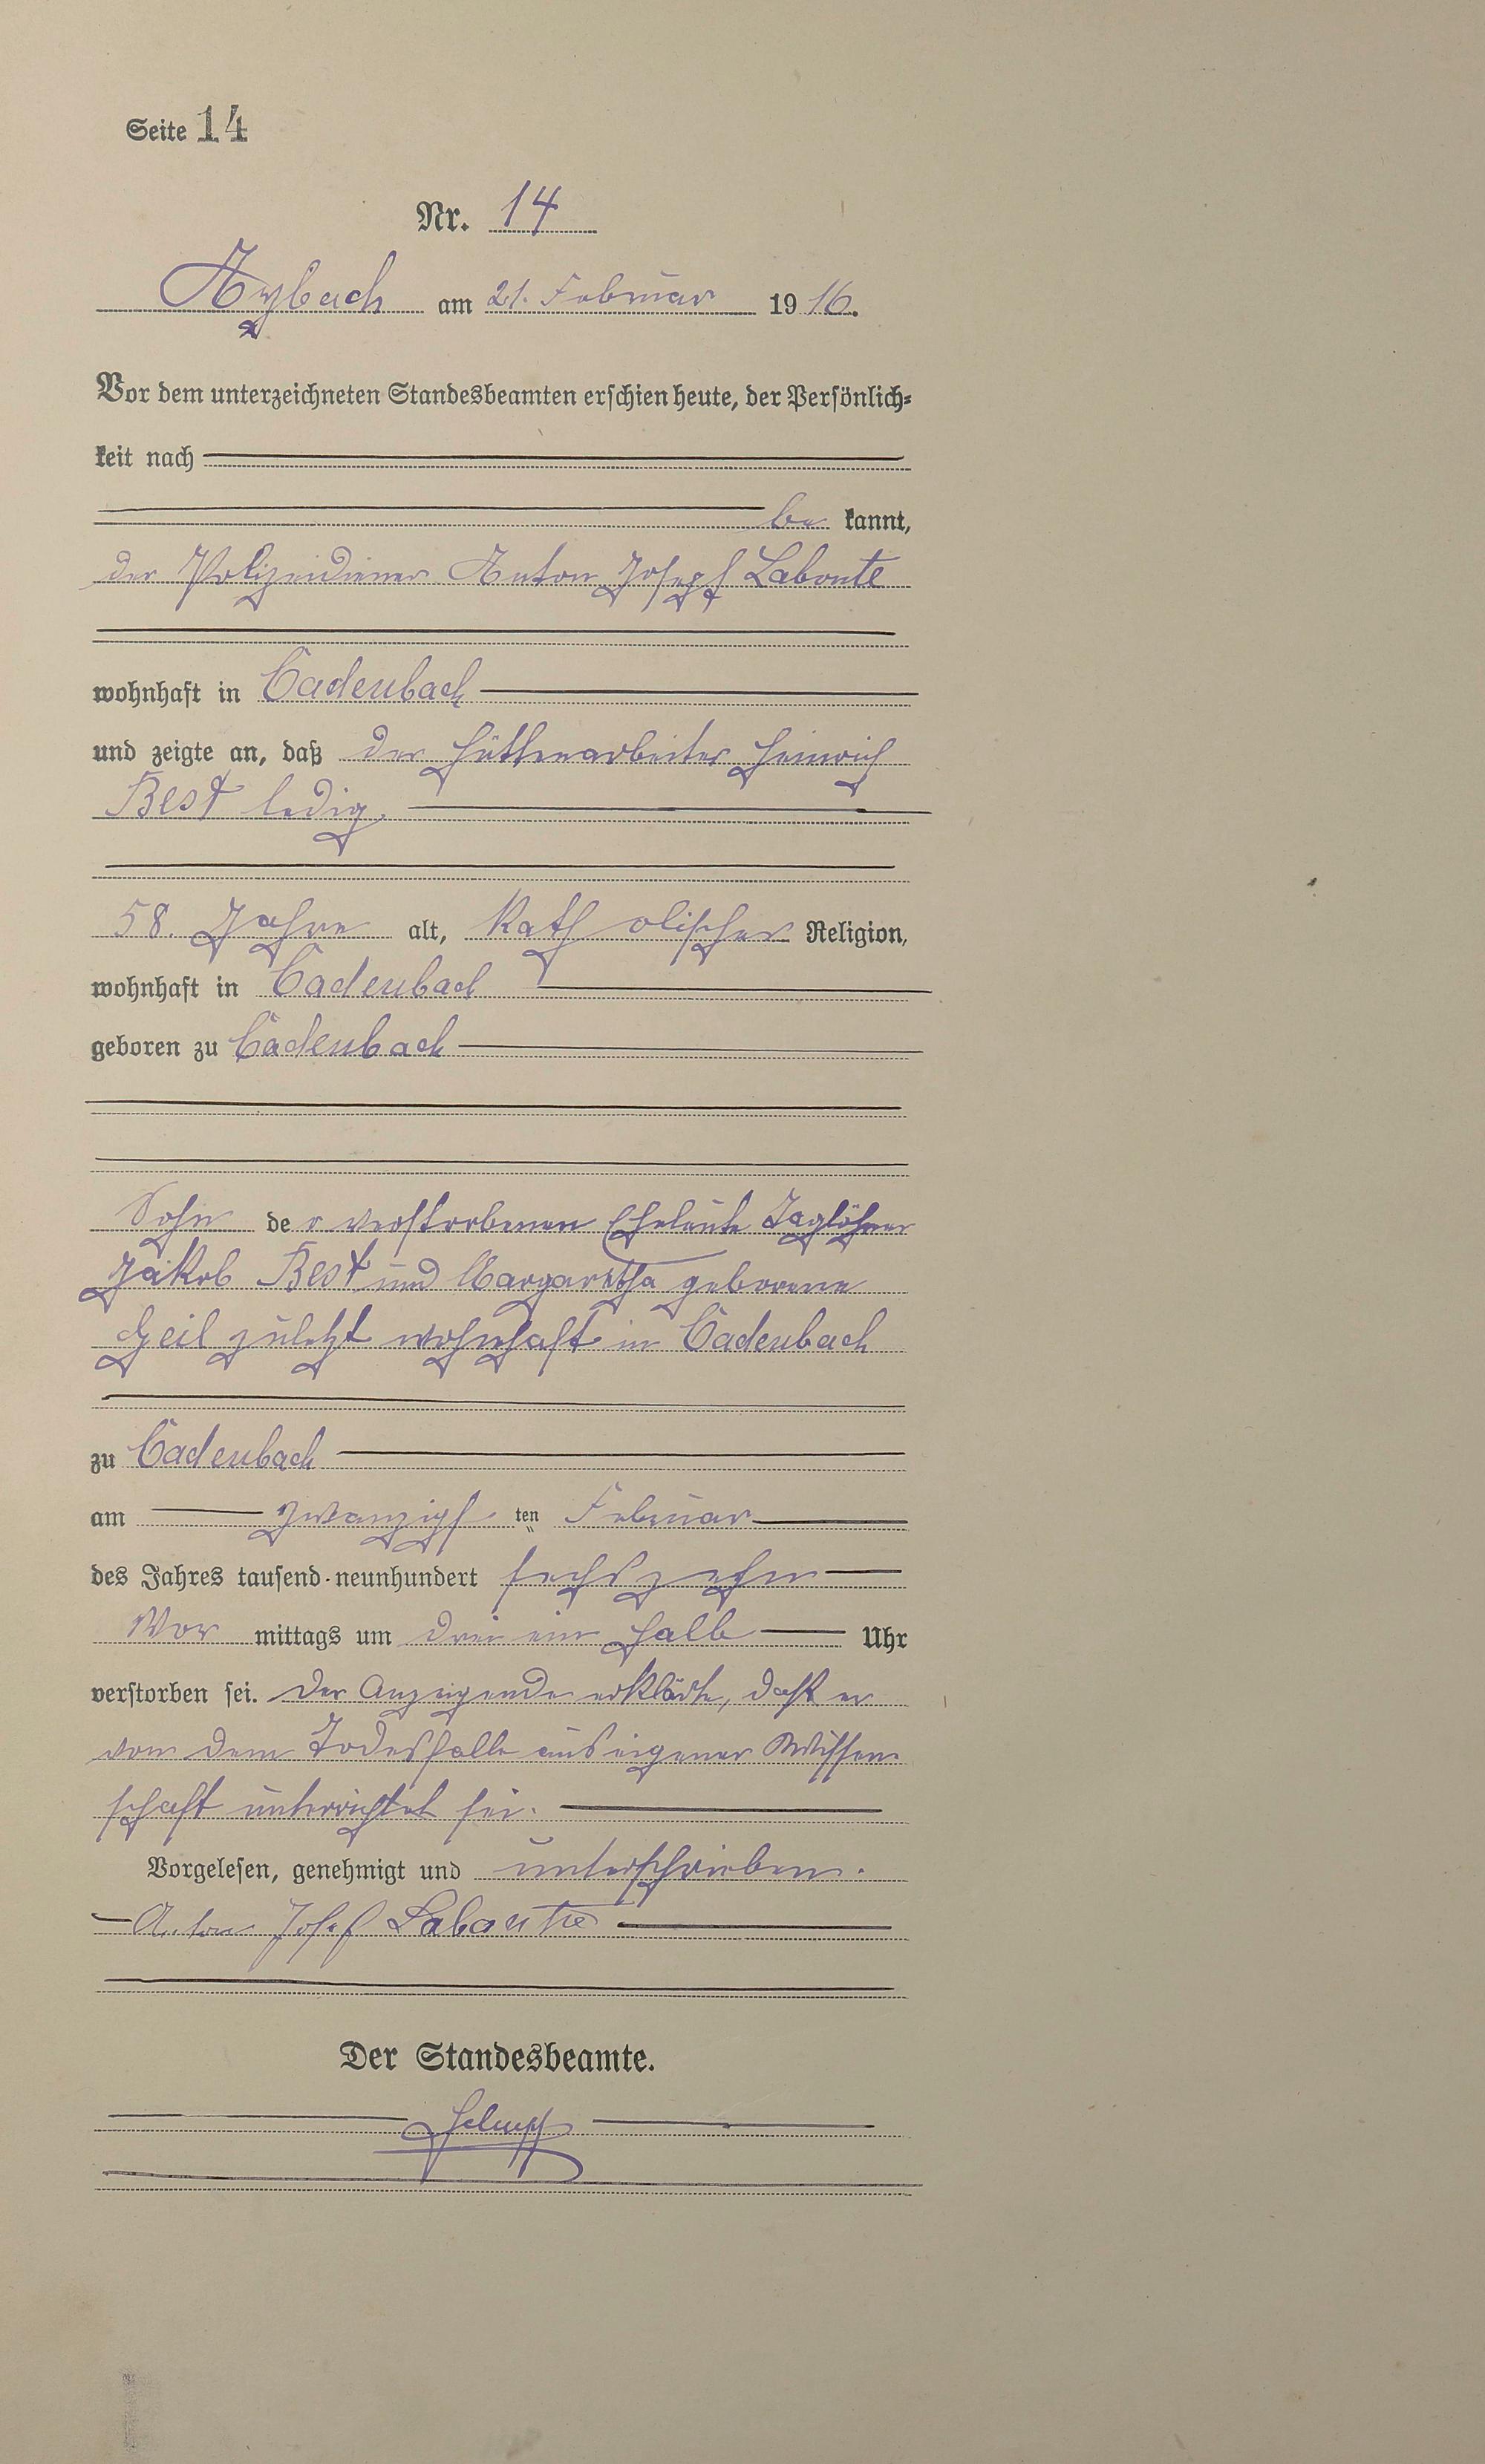 Seite 14
Nr. 14
Arzbach am 21. Februar 1916.
Vor dem unterzeichneten Standesbeamten erschien heute, der Persönlich-
keit nach
be kannt,
der Polizeidiener Anton Joseph Labonte
wohnhaft in Cadenbach
und zeigte an, daß der Hüttenarbeiter Heinrich
Best ledig,
58. Jahre alt, katholischer Religion,
wohnhaft in Cadenbach
geboren zu Cadenbach
Sohn der verstorbenen Eheleute Taglöhner
Jakob Best und Margaretha geborene
Geil zuletzt wohnhaft in Cadenbach
zu Cadenbach
am zwanzigsten Februar
des Jahres tausend-neunhundert sechszehn
Vor mittags um drei ein halb Uhr
verstorben sei. Der Anzeigende erklärte, daß er
von dem Todesfalle aus eigener Wissen
schaft unterrichtet sei.
Vorgelesen, genehmigt und unterschrieben.
Anton Josef Labonte
Der Standesbeamte.